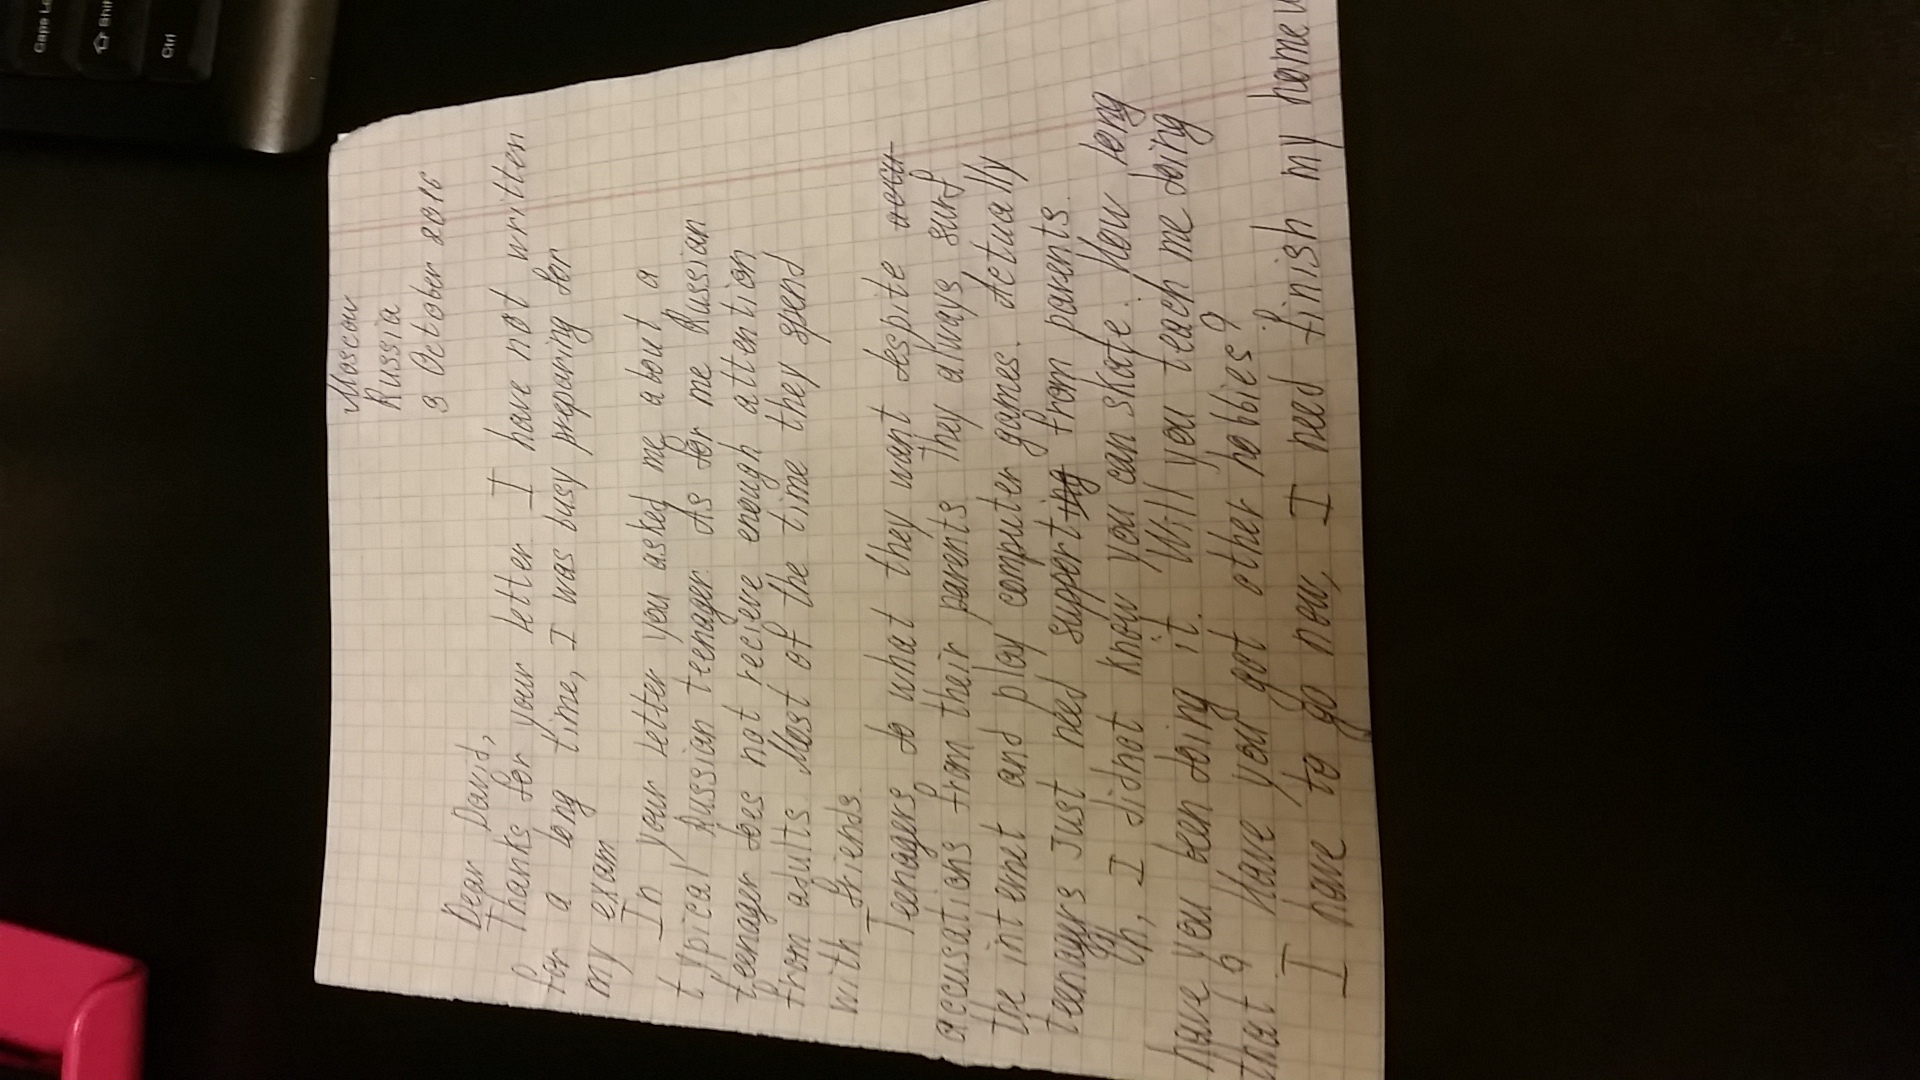 Caps Lo
Shift
Ctrl
Moscow
Russia
3 October 2016
Dear David,
Thanks for your letter. I have not written
for a long time, I was busy preparing for
my exam
In your letter you asked me about a
typical Russian teenager. As for me Russian
teenager does not recieve enough attention
from adults. Most of the time they spend
with friends.
Teenagers do what they want despite
accusations from their parents. They always surf
the internet and play computer games. Actually
teenagers just need support from parents.
Oh, I didnot know you can skate. How long
have you been doing it. Will you teach me doing
that? Have you got other hobbies?
I have to go now, I need finish my homew